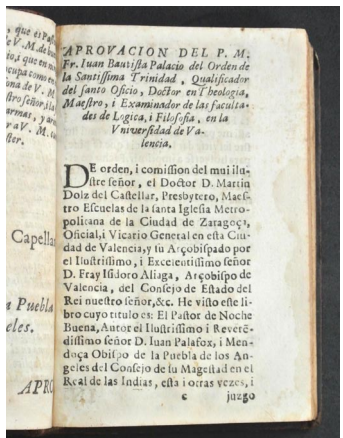 , que el Past
e V. M. de
io, que en
ocupa como en
ona de V. M.
stro señor, i la
armas, y
r a V. M.
ster.
Capellan
Puebla
eles.
APRO
APROVACION DEL P. M.
Fr. Iuan Bautista Palacio del Orden de
la Santissima Trinidad, Qualificador
del santo Oficio, Doctor en Theologia,
Maestro, i Examinador de las faculta-
des de Logica, i Filosofia, en la
Vniversidad de Va-
lencia.
DE orden, i comission del mui ilu-
stre señor, el Doctor D. Martin
Dolz del Castellar, Presbytero, Maes-
tro Escuelas de la santa Iglesia Metro-
politana de la Ciudad de Zaragoça,
Oficial, i Vicario General en esta Ciu-
dad de Valencia, y su Arçobispado por
el Ilustrissimo, i Excelentissimo señor
D. Fray Isidoro Aliaga, Arçobispo de
Valencia, del Consejo de Estado del
Rei nuestro señor, &c. He visto este li-
bro cuyo titulo es: El Pastor de Noche
Buena, Autor el Ilustrissimo i Reverē-
dissimo señor D. Iuan Palafox, i Men-
doça Obispo de la Puebla de los An-
geles del Consejo de su Magestad en el
Real de las Indias, esta i otras vezes, i
c juzgo